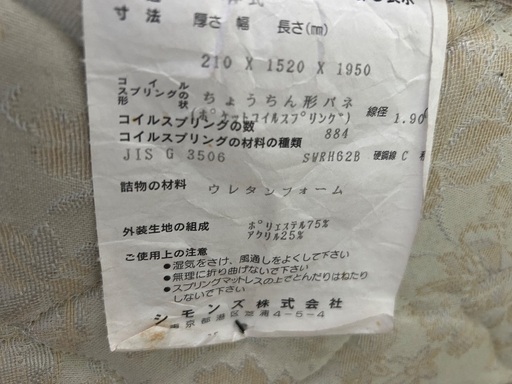 寸法 厚さ 幅 長さ(㎜)
210 X 1520 X 1950
コイル
スプリングの
形状
ちょうちん形バネ
(ポケットコイルスプリング) 線径 1.90
コイルスプリングの数 884
コイルスプリングの材料の種類
JIS G 3506 SWRH62B 硬鋼線 C
詰物の材料 ウレタンフォーム
外装生地の組成 ポリエステル75%
アクリル25%
ご使用上の注意
●湿気をさけ、風通しをよくして下さい
●無理に折り曲げないで下さい
●スプリングマットレスの上でとんだりはねたり
しないで下さい
シモンズ株式会社
東京都港区芝浦4-5-4